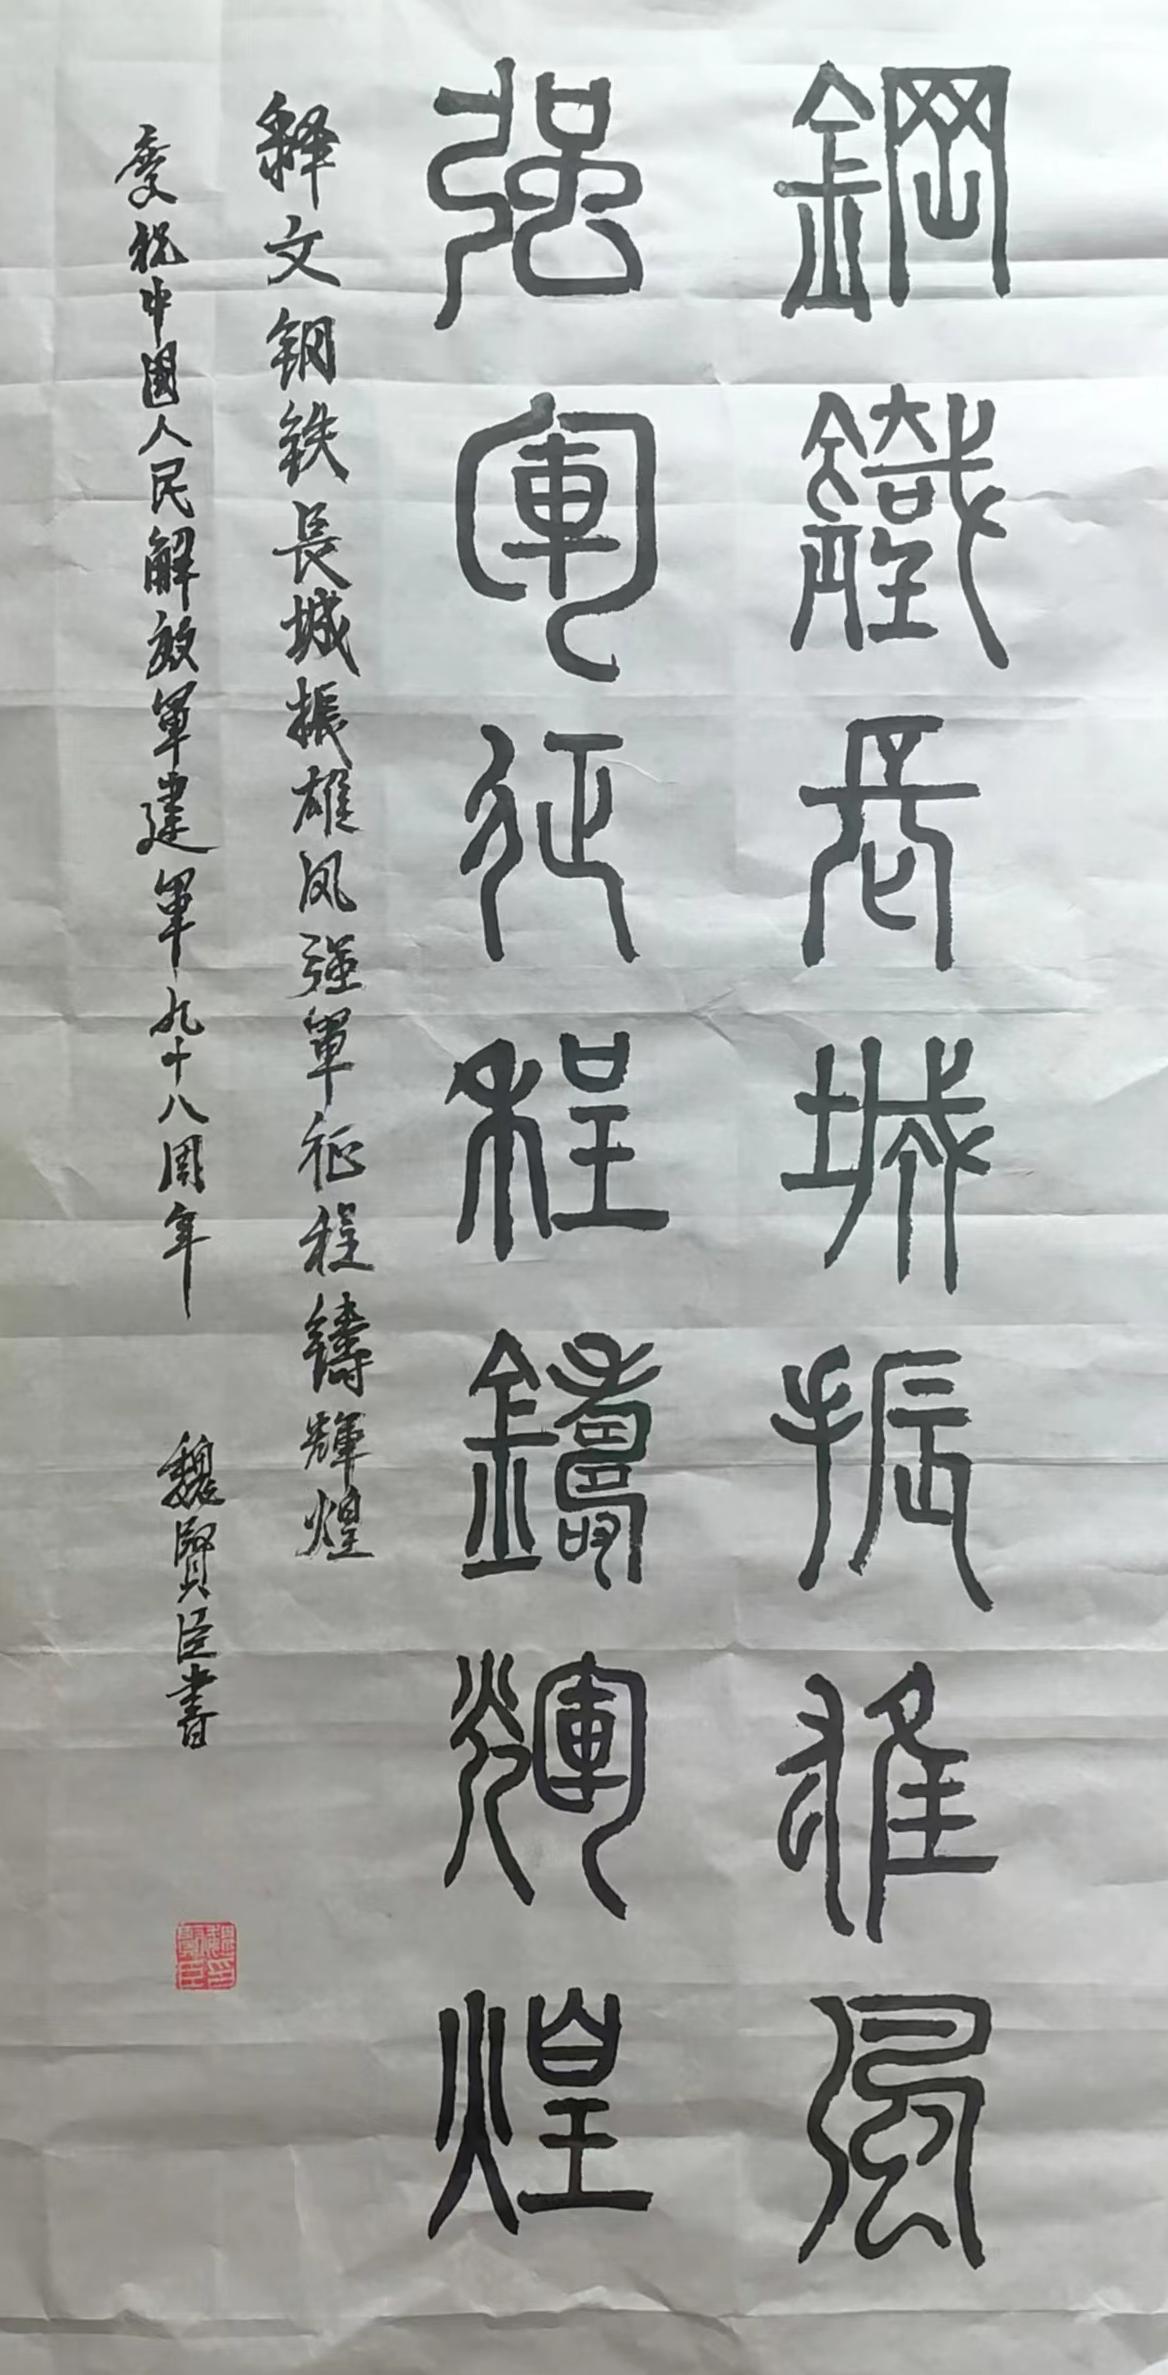 鋼鐵長城振雄風
强軍征程鑄輝煌
释文钢铁長城振雄风强軍征程鑄輝煌
庆祝中国人民解放軍建軍九十八周年 魏賢臣書
魏賢臣印